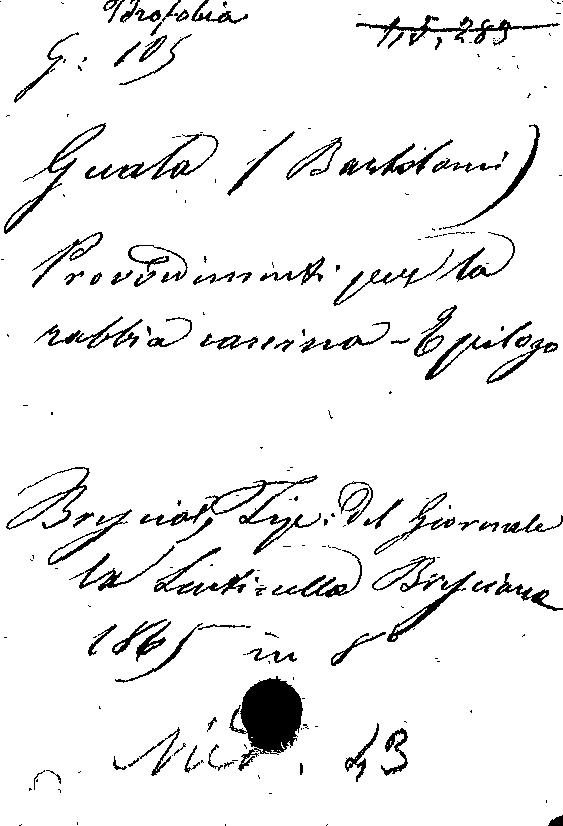 Idrofobia
G: 105
1,5, 283
Guala (Bartolomi)
Provvedimenti per la
rabbia canina - Epilogo
Brescia, Tip: del Giornale
la Sentinella Bresciana
1865 in 8º
43